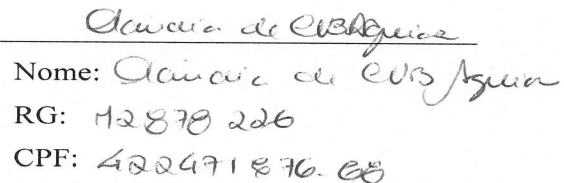 Claudia de CVB Aguiar
Nome: Claudia de CVB Aguiar
RG: M2878 226
CPF: 422471876.68